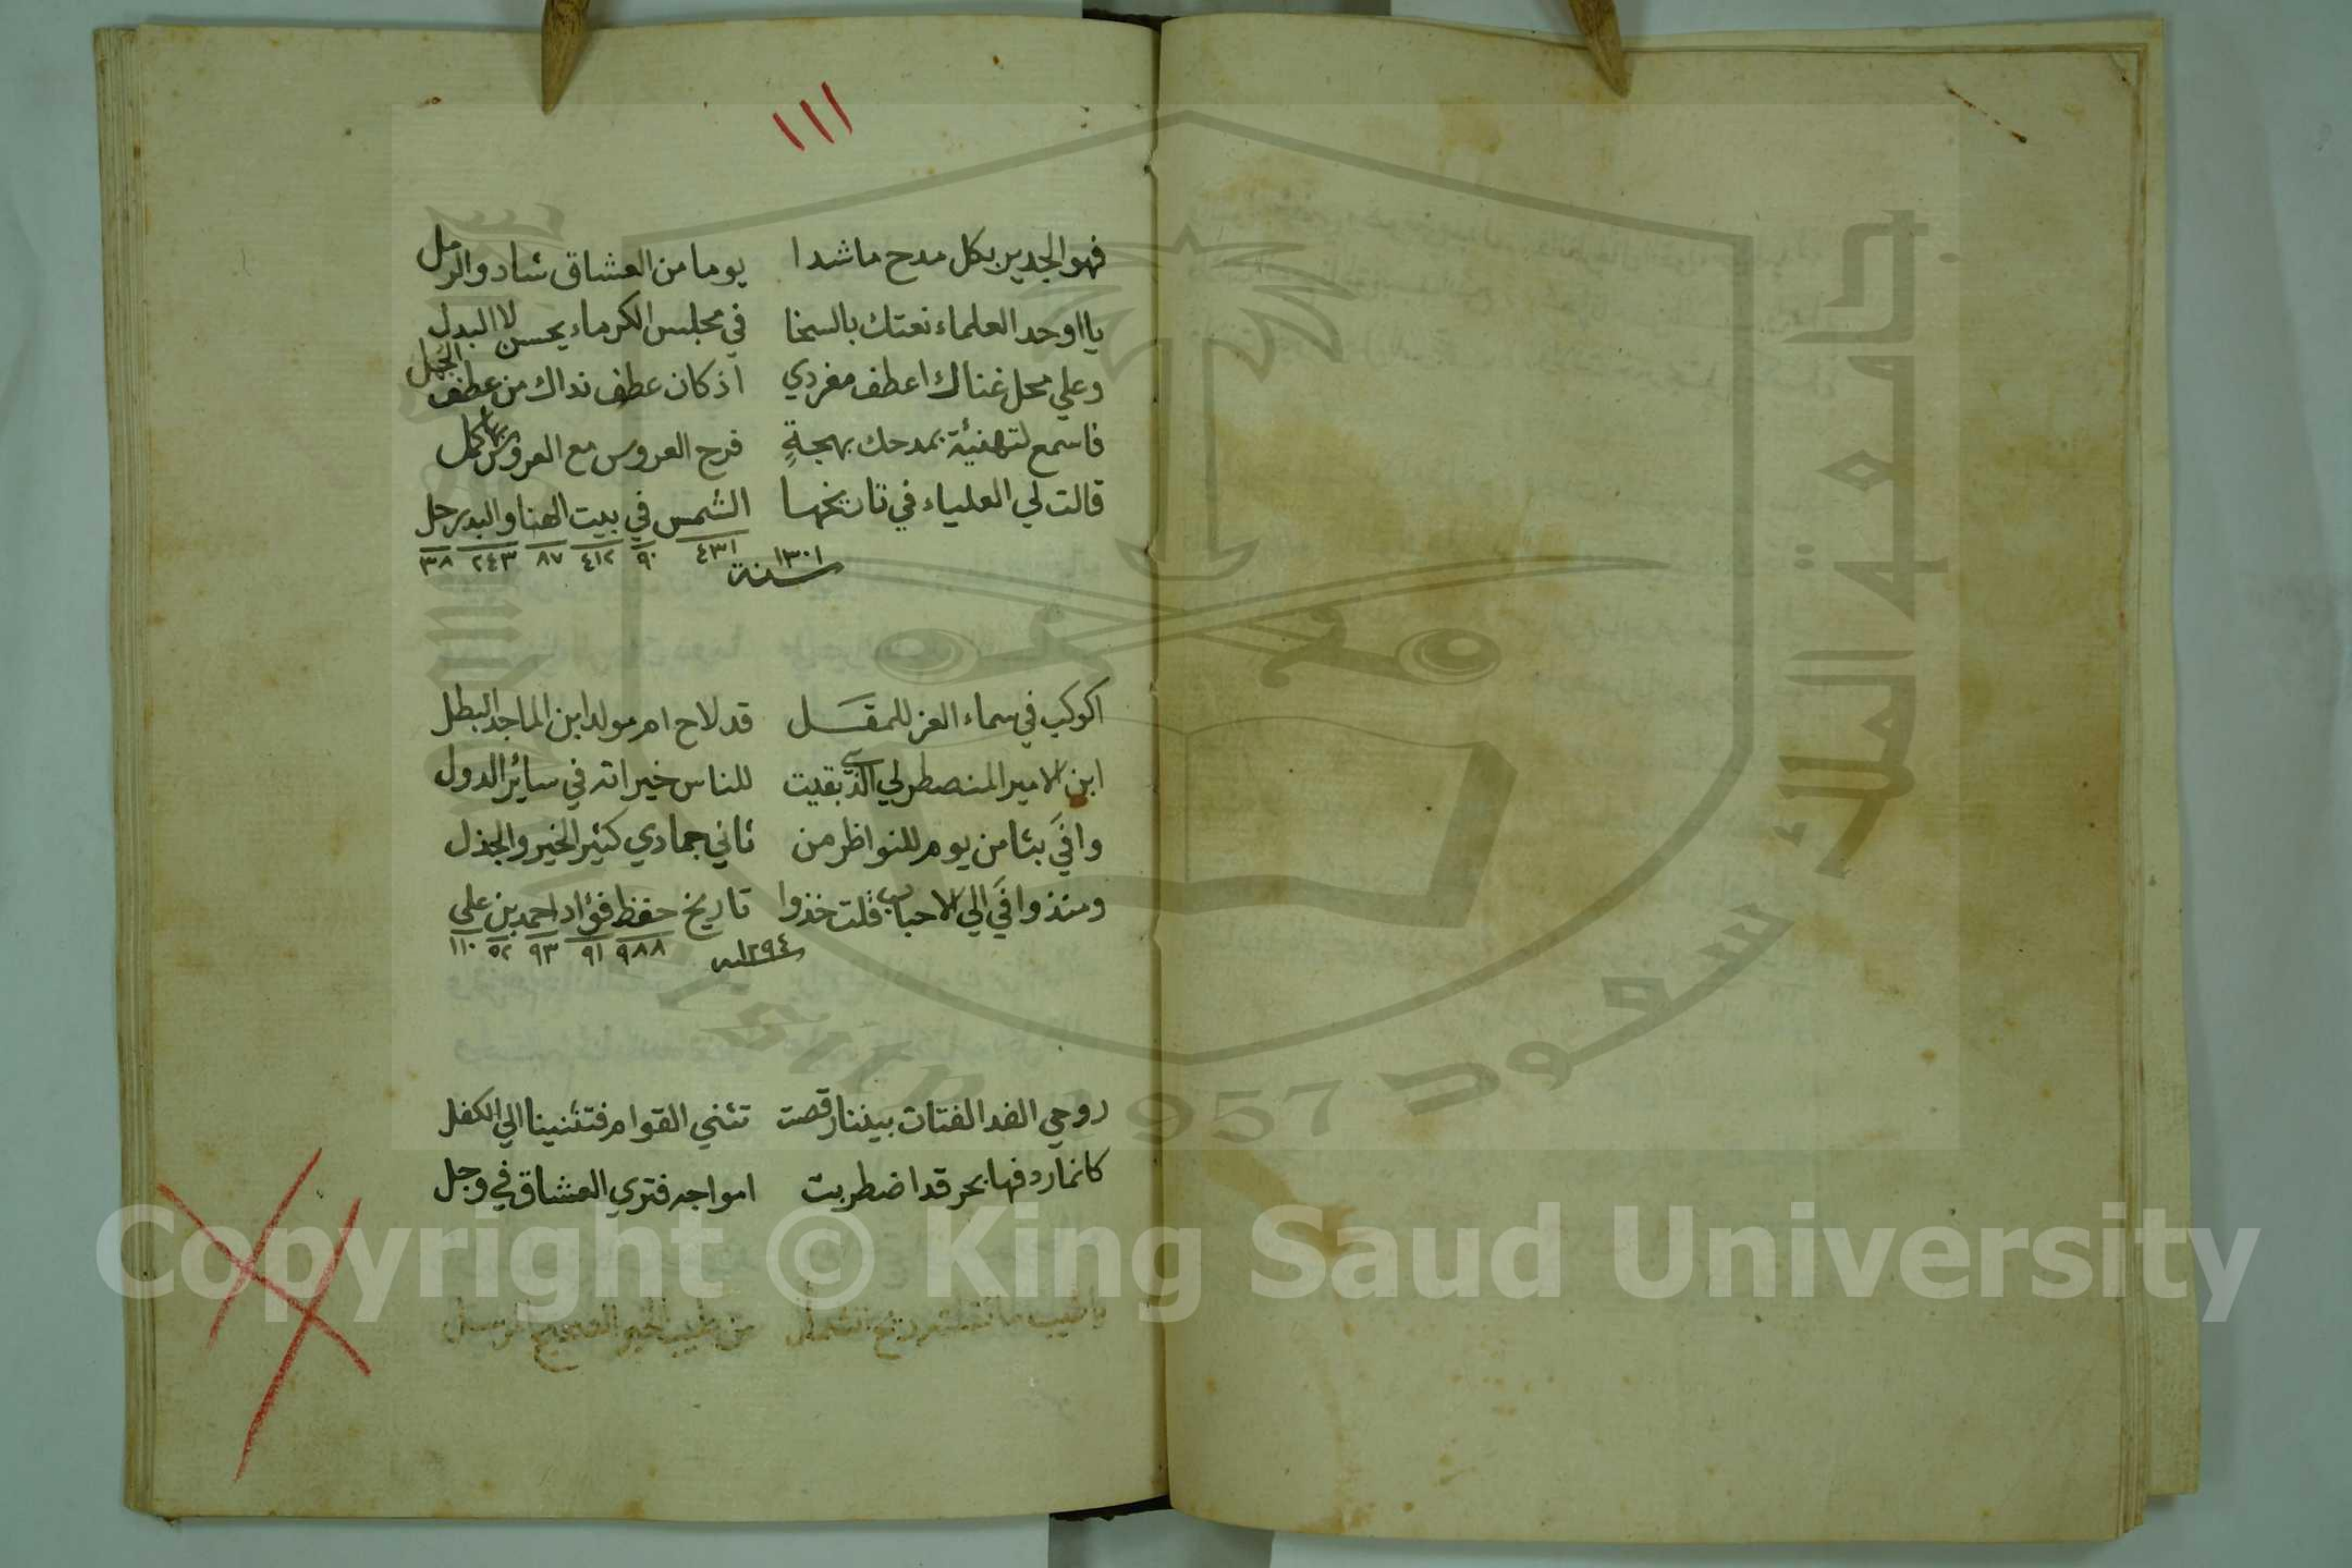 ١١١
فهو الجدير بكل مدح ما شدا يوما من العشاق شاد والرمل
يا اوحد العلماء نعتك بالسخا في مجلس الكرماء يحسن لا البدل
وعلي محل غناك اعطف مفردي اذ كان عطف نداك من عطف الجمل
فاسمع لتهنيئة بمدحك بهجةٍ فرح العروس مع العروس بها كمل
قالت لي العلياء في تاريخها الشمس في بيت الهنا والبدر حل
٤٣١ ٩٠ ٤١٢ ٨٧ ٢٤٣ ٣٨
سنة ١٣٠١
اكوكب في سماء العز للمقل قد لاح ام مولد ابن الماجد البطل
ابن الامير المنصطرلي الذي بقيت للناس خيراته في سائر الدول
وافي بثامن يوم للنواظر من ثاني جمادي كثير الخير والجذل
ومنذ وافي الي الاحباب قلت خذوا تاريخ حفظ فؤاد احمد بن علي
٩٨٨ ٩١ ٩٣ ٥٢ ١١٠
سنه ١٢٩٤
روحي الفدا لفتات بيننا رقصت تثني القوام فتثنينا الي الكفل
كانما ردفها بحر قد اضطربت امواجه فتري العشاق في وجل
من طيب الخبر الصحيح المرسل
جامعة الملك سعود
1957
Copyright © King Saud University